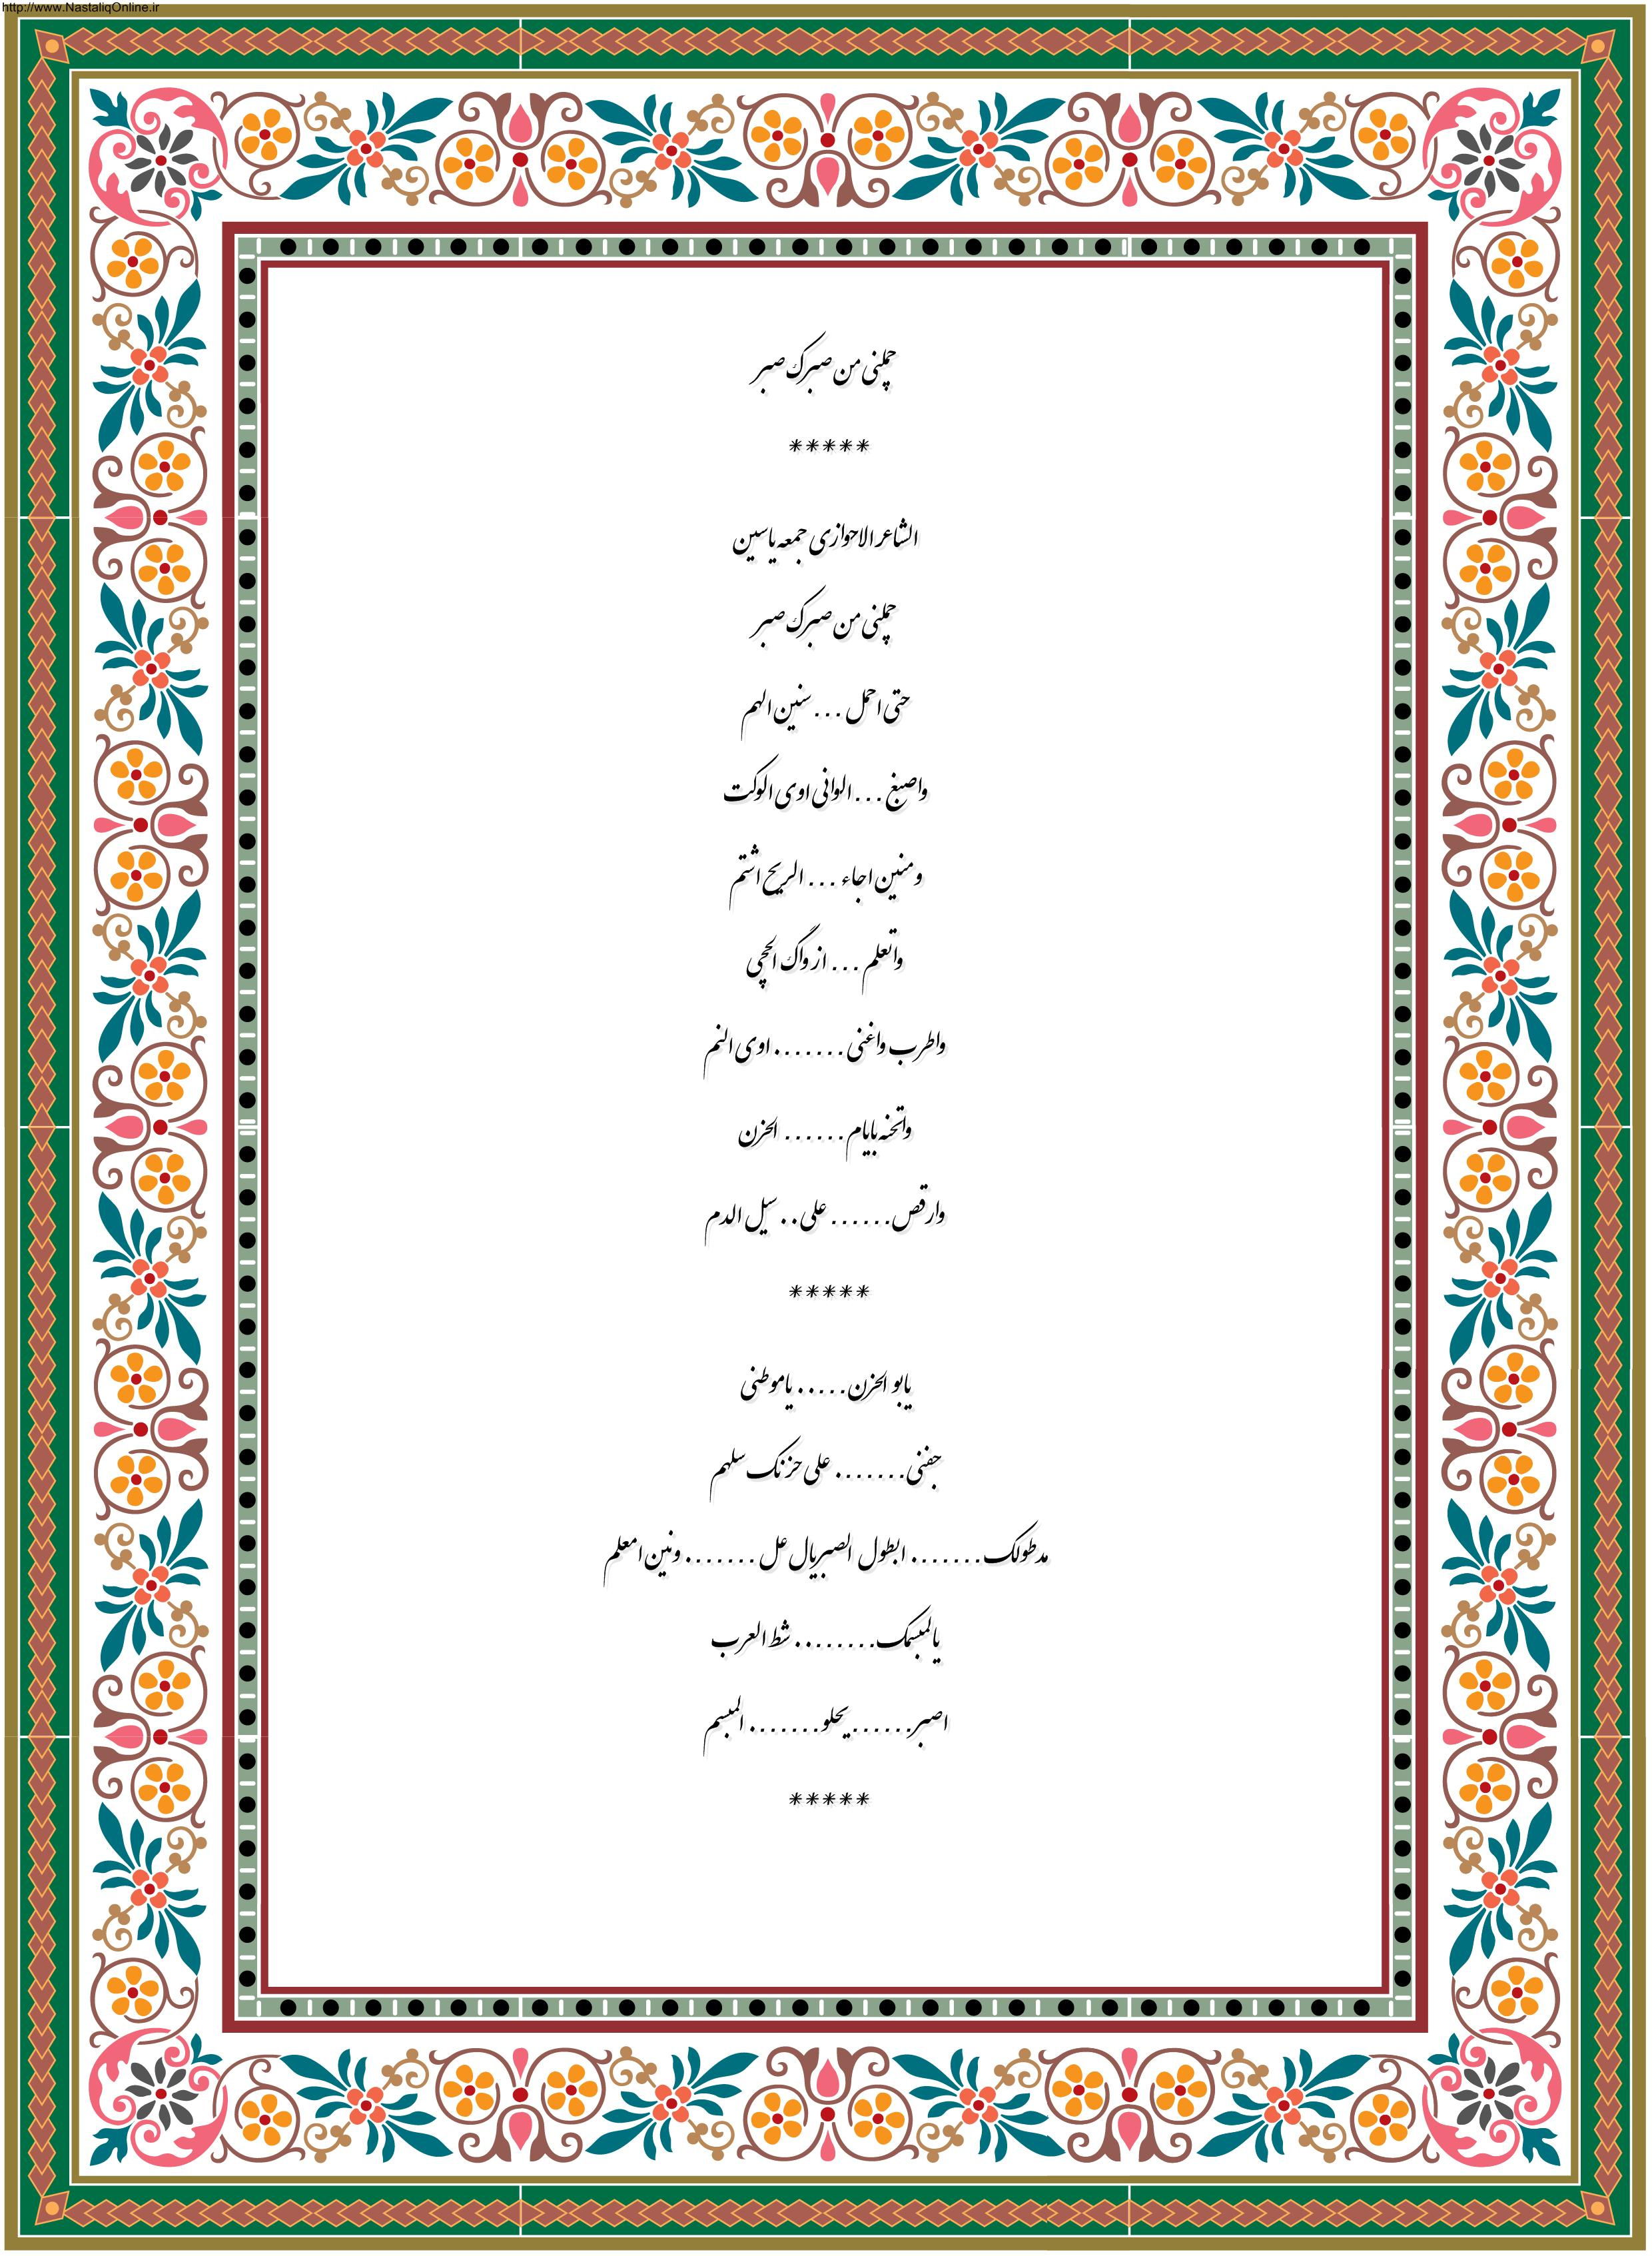 http://www.NastaliqOnline.ir
حملنی من صبرک صبر
*****
الشاعر الاحوازی جمعه یاسین
حملنی من صبرک صبر
حتی احمل ... سنین الهم
واصبغ ... الوانی اوی الوکت
ومنین اجاء ... الریح اشتم
واتعلم ... ازواگ الحچی
واطرب واغنی ....... اوی النم
واتحنه بایام ...... الحزن
وارقص...... علی .. سیل الدم
*****
یابو الحزن..... یاموطنی
جفنی....... علی حزنک سلهم
مدطولک....... ابطول الصبریال عل ....... ونین امعلم
یالمبسمک........ شط العرب
اصبر...... یحلو....... المبسم
*****